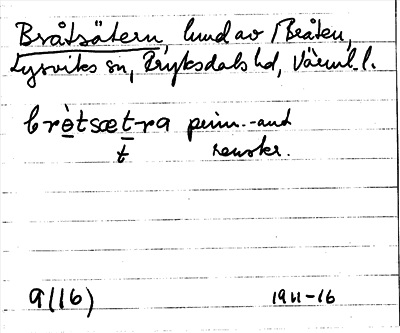 Bråtsätern, lund av Bråten,
Lysviks sn, Fryksdals hd, Värml. l.
brètsætra perim.-and
t renskr.
9(16) 1911-16